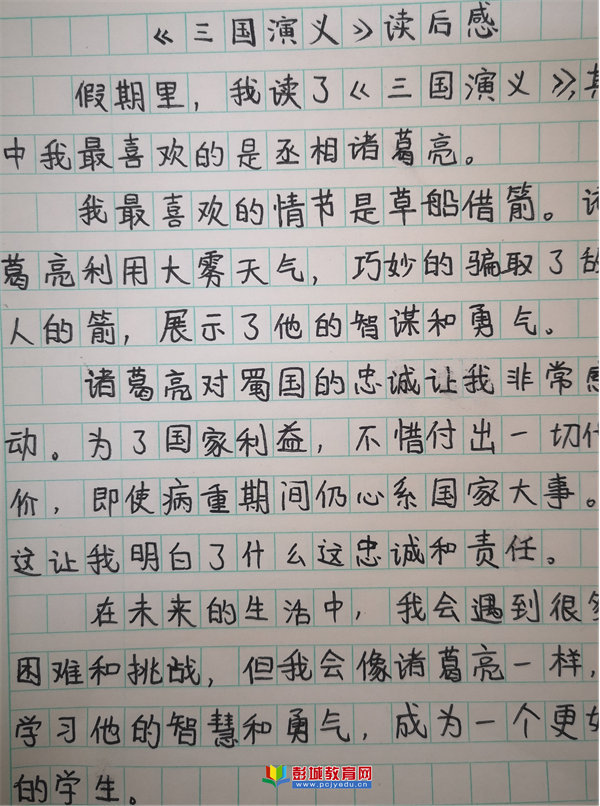 《三国演义》读后感
假期里，我读了《三国演义》，其
中我最喜欢的是丞相诸葛亮。
我最喜欢的情节是草船借箭。诸
葛亮利用大雾天气，巧妙的骗取了敌
人的箭，展示了他的智谋和勇气。
诸葛亮对蜀国的忠诚让我非常感
动。为了国家利益，不惜付出一切代
价，即使病重期间仍心系国家大事。
这让我明白了什么这忠诚和责任。
在未来的生活中，我会遇到很多
困难和挑战，但我会像诸葛亮一样，
学习他的智慧和勇气，成为一个更好
的学生。
彭城教育网
www.pcjyedu.cn